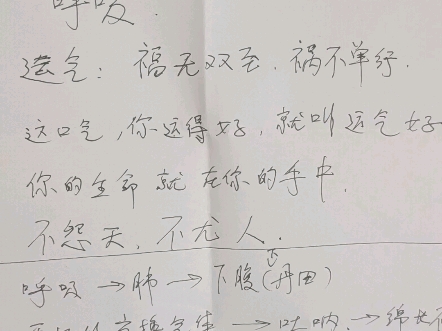 呼吸.
运气: 福无双至. 祸不单行.
这口气,你运得好,就叫运气好
你的生命就在你的手中.
不怨天,不尤人.
呼吸→肺→下腹(丹田)
→吐呐→绵长